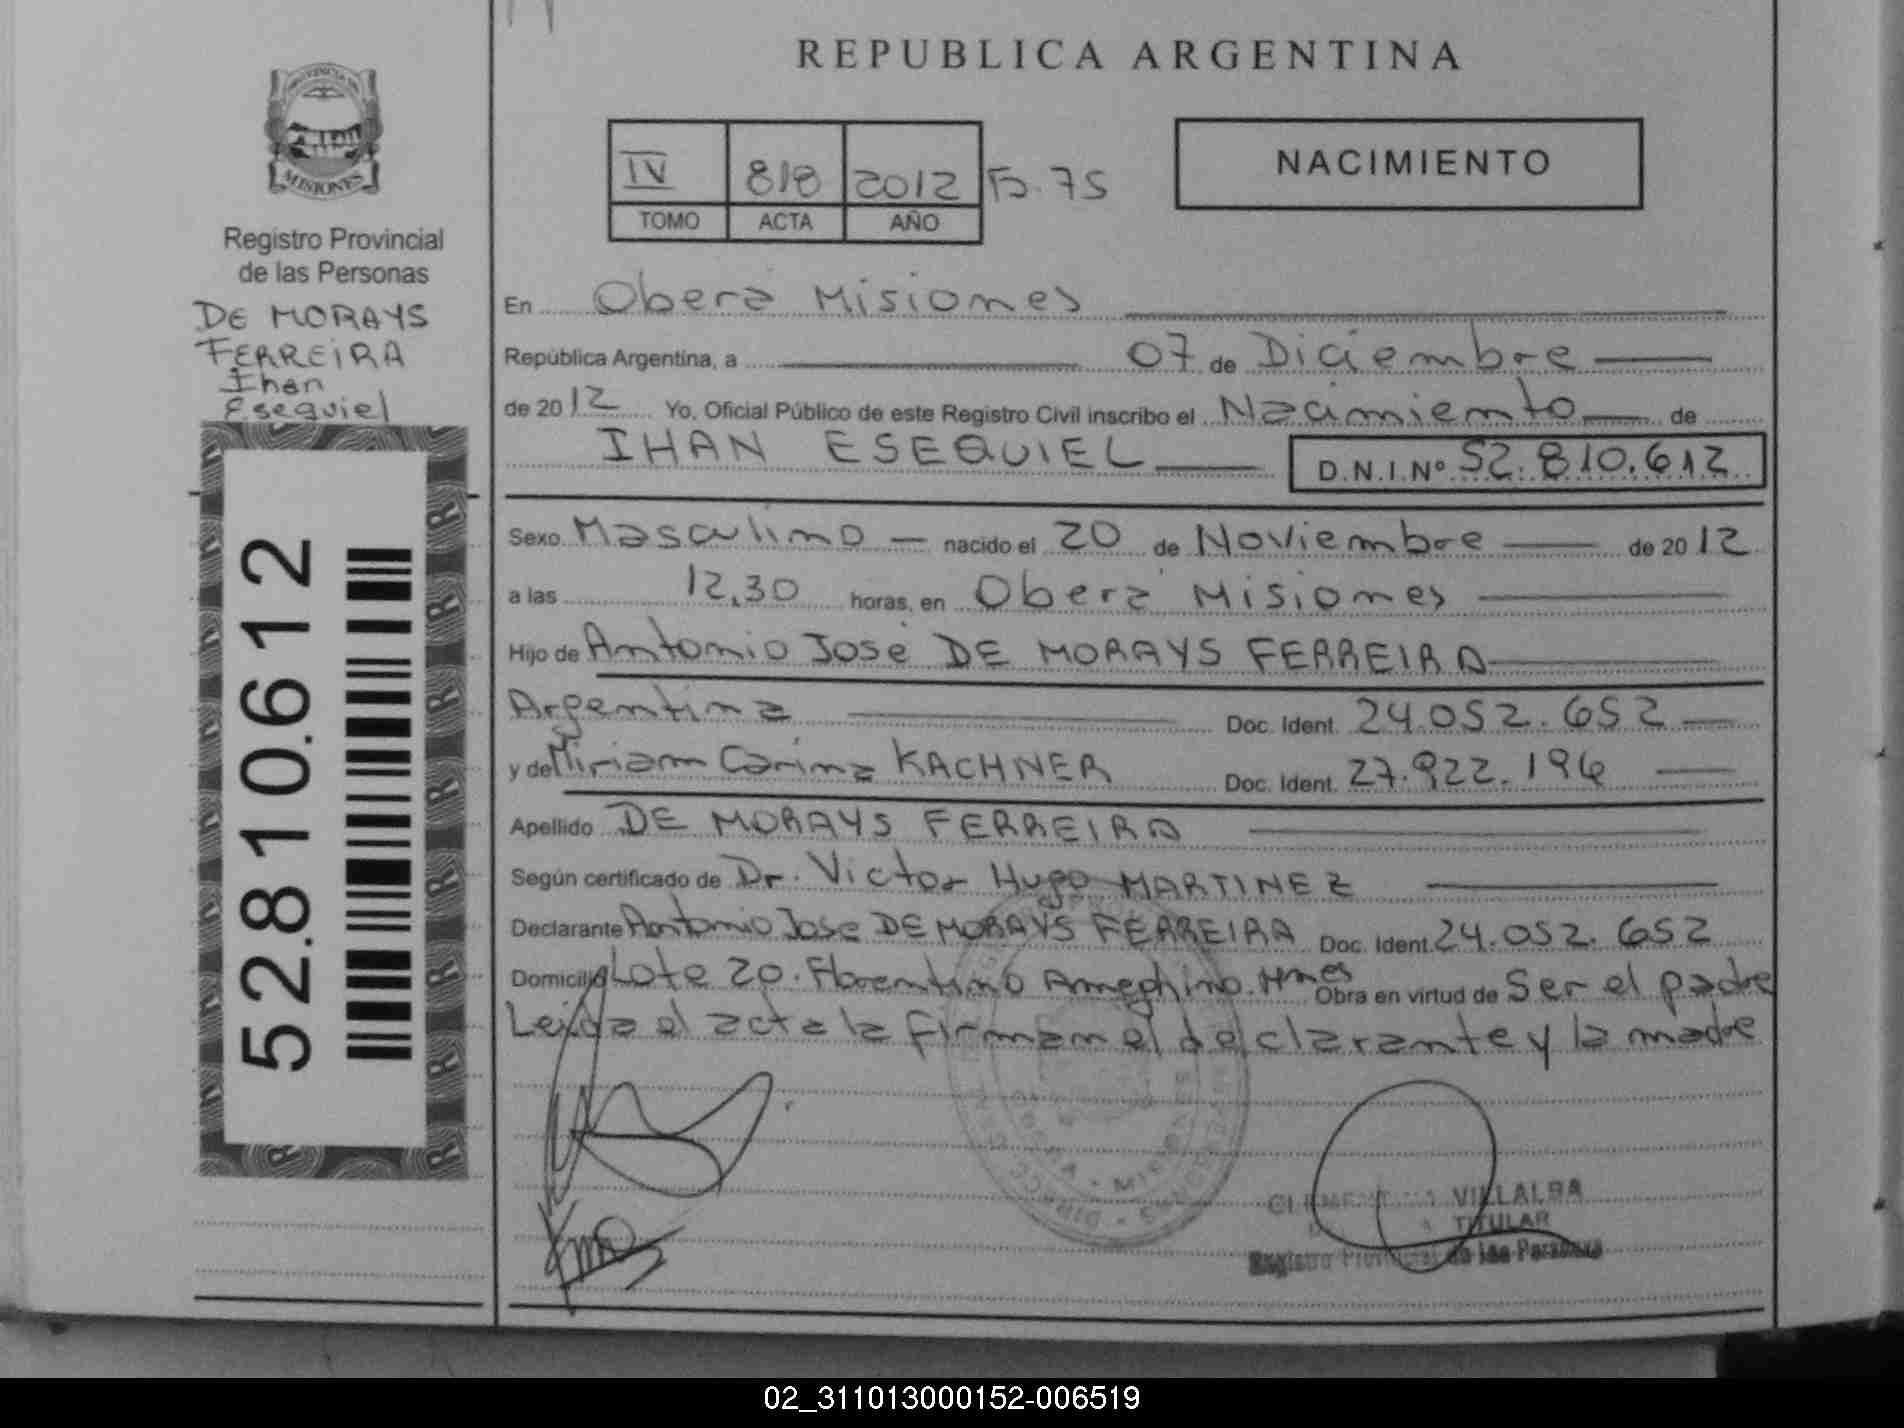 REPUBLICA ARGENTINA
PROVINCIA DE
MISIONES
Registro Provincial
de las Personas
DE MORAYS
FERREIRA
Ihan
Esequiel
52.810.612
IV 818 2012 Fº. 75
TOMO ACTA AÑO
NACIMIENTO
En Oberá Misiones
República Argentina, a 07 de Diciembre
de 2012 Yo, Oficial Público de este Registro Civil inscribo el Nacimiento de
IHAN ESEQUIEL D.N.I.Nº 52.810.612
Sexo Masculino nacido el 20 de Noviembre de 2012
a las 12,30 horas, en Oberá Misiones
Hijo de Antonio José DE MORAYS FERREIRA
Argentina Doc. Ident. 24.052.652
y de Miriam Carina KACHNER Doc. Ident. 27.922.196
Apellido DE MORAYS FERREIRA
Según certificado de Dr. Victor Hugo MARTINEZ
Declarante Antonio Jose DE MORAYS FERREIRA Doc. Ident. 24.052.652
Domicilio Lote 20. Florentino Ameghino. Mnes Obra en virtud de Ser el padre
Leida el acta la firman el declarante y la madre
VILLALBA
TITULAR
Registro Provincial de las Personas
02_311013000152-006519